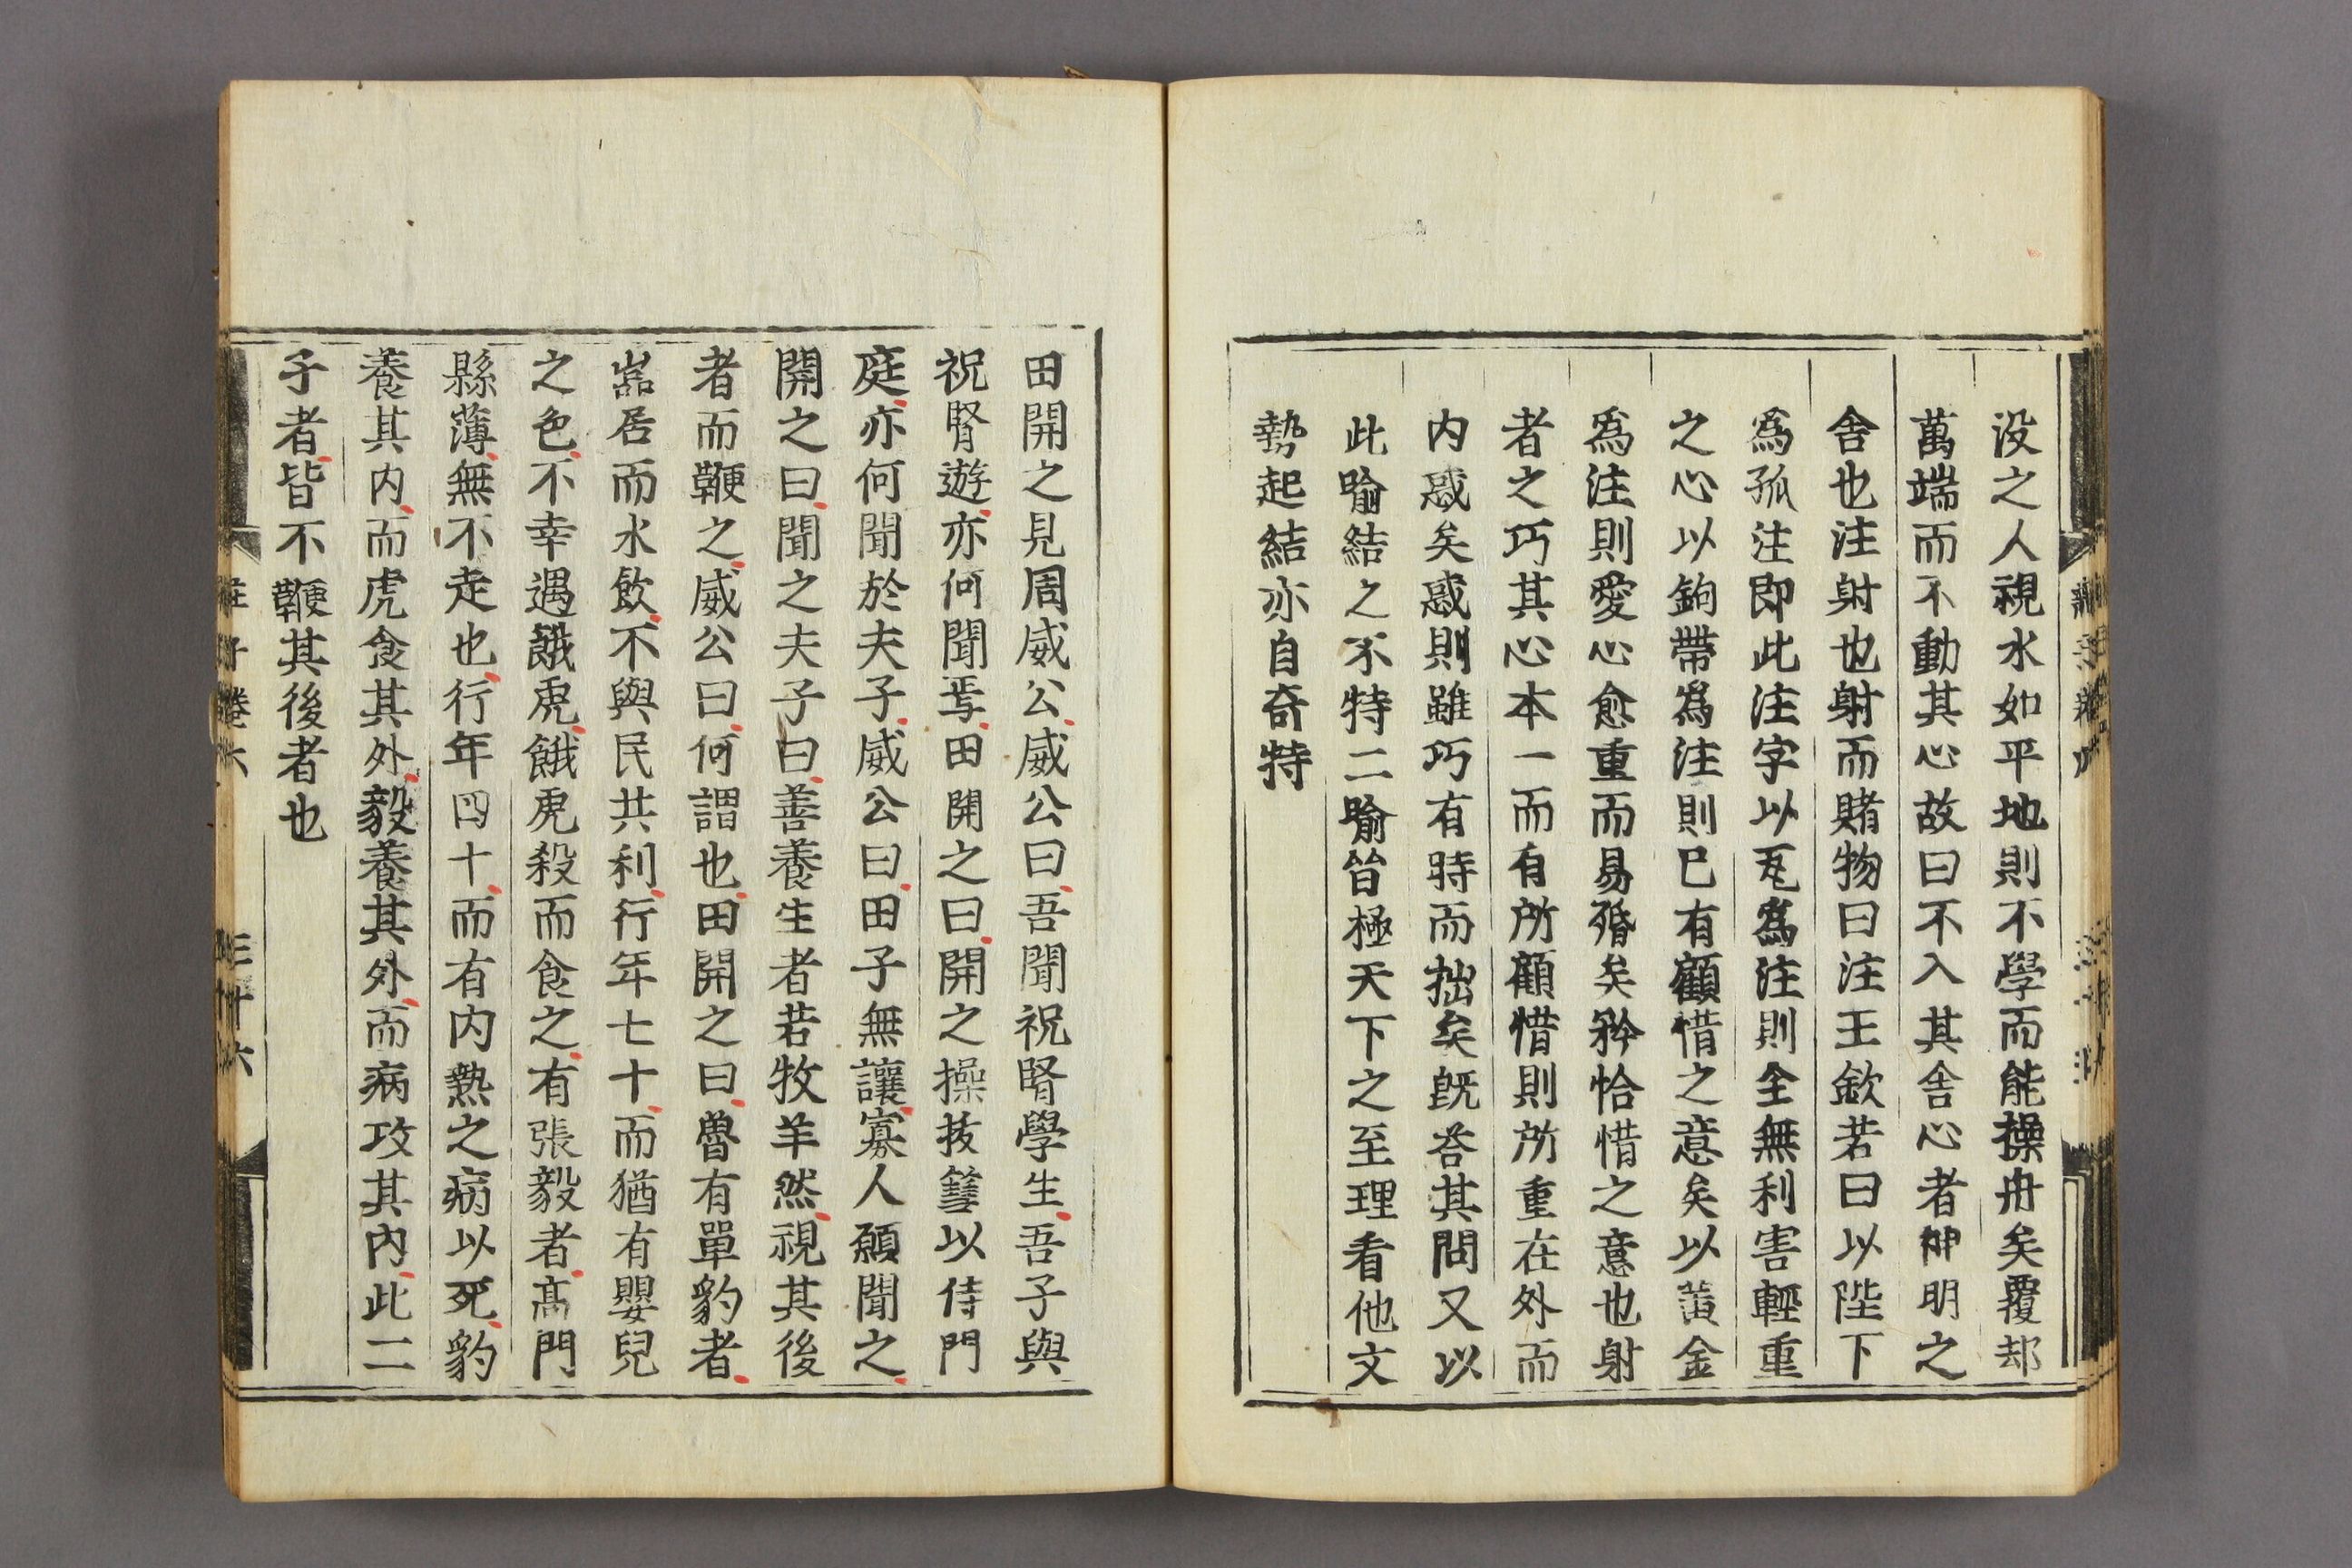 没之人視水如平地則不學而能操舟矣覆却
萬端而不動其心故曰不入其舍心者神明之
舍也注射也射而賭物曰注王欽若曰以陛下
爲孤注即此注字以瓦爲注則全無利害輕重
之心以鉤帶爲注則已有顧惜之意矣以黃金
爲注則愛心愈重而易殙矣矜恰惜之意也射
者之巧其心本一而有所顧惜則所重在外而
内惑矣惑則雖巧有時而拙矣旣荅其問又以
此喻結之不特二喻皆極天下之至理看他文
勢起結亦自奇特
田開之見周威公威公曰吾聞祝腎學生吾子與
祝腎遊亦何聞焉田開之曰開之操拔篲以侍門
庭亦何聞於夫子威公曰田子無讓寡人願聞之
開之曰聞之夫子曰善養生者若牧羊然視其後
者而鞭之威公曰何謂也田開之曰魯有單豹者
嵓居而水飮不與民共利行年七十而猶有嬰兒
之色不幸遇餓虎餓虎殺而食之有張毅者高門
縣薄無不走也行年四十而有内熱之病以死豹
養其内而虎食其外毅養其外而病攻其内此二
子者皆不鞭其後者也
莊子卷六
三十六